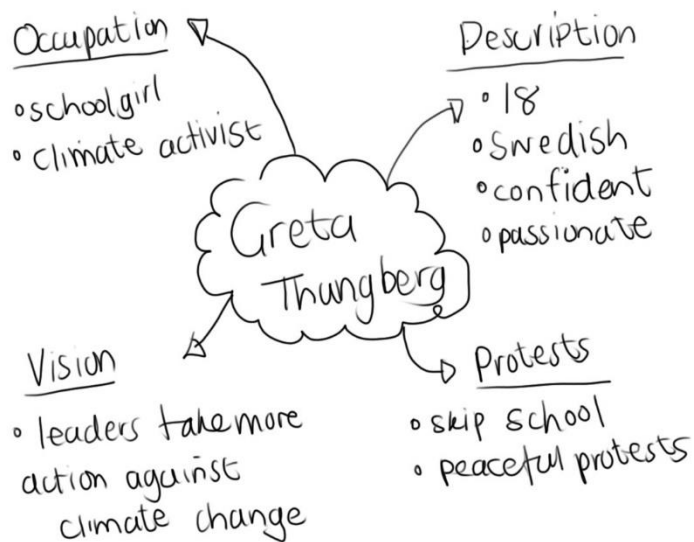 Occupation
• schoolgirl
• climate activist
Description
• 18
• Swedish
• confident
• passionate
Greta
Thungberg
Vision
• leaders take more
action against
climate change
Protests
• skip school
• peaceful protests